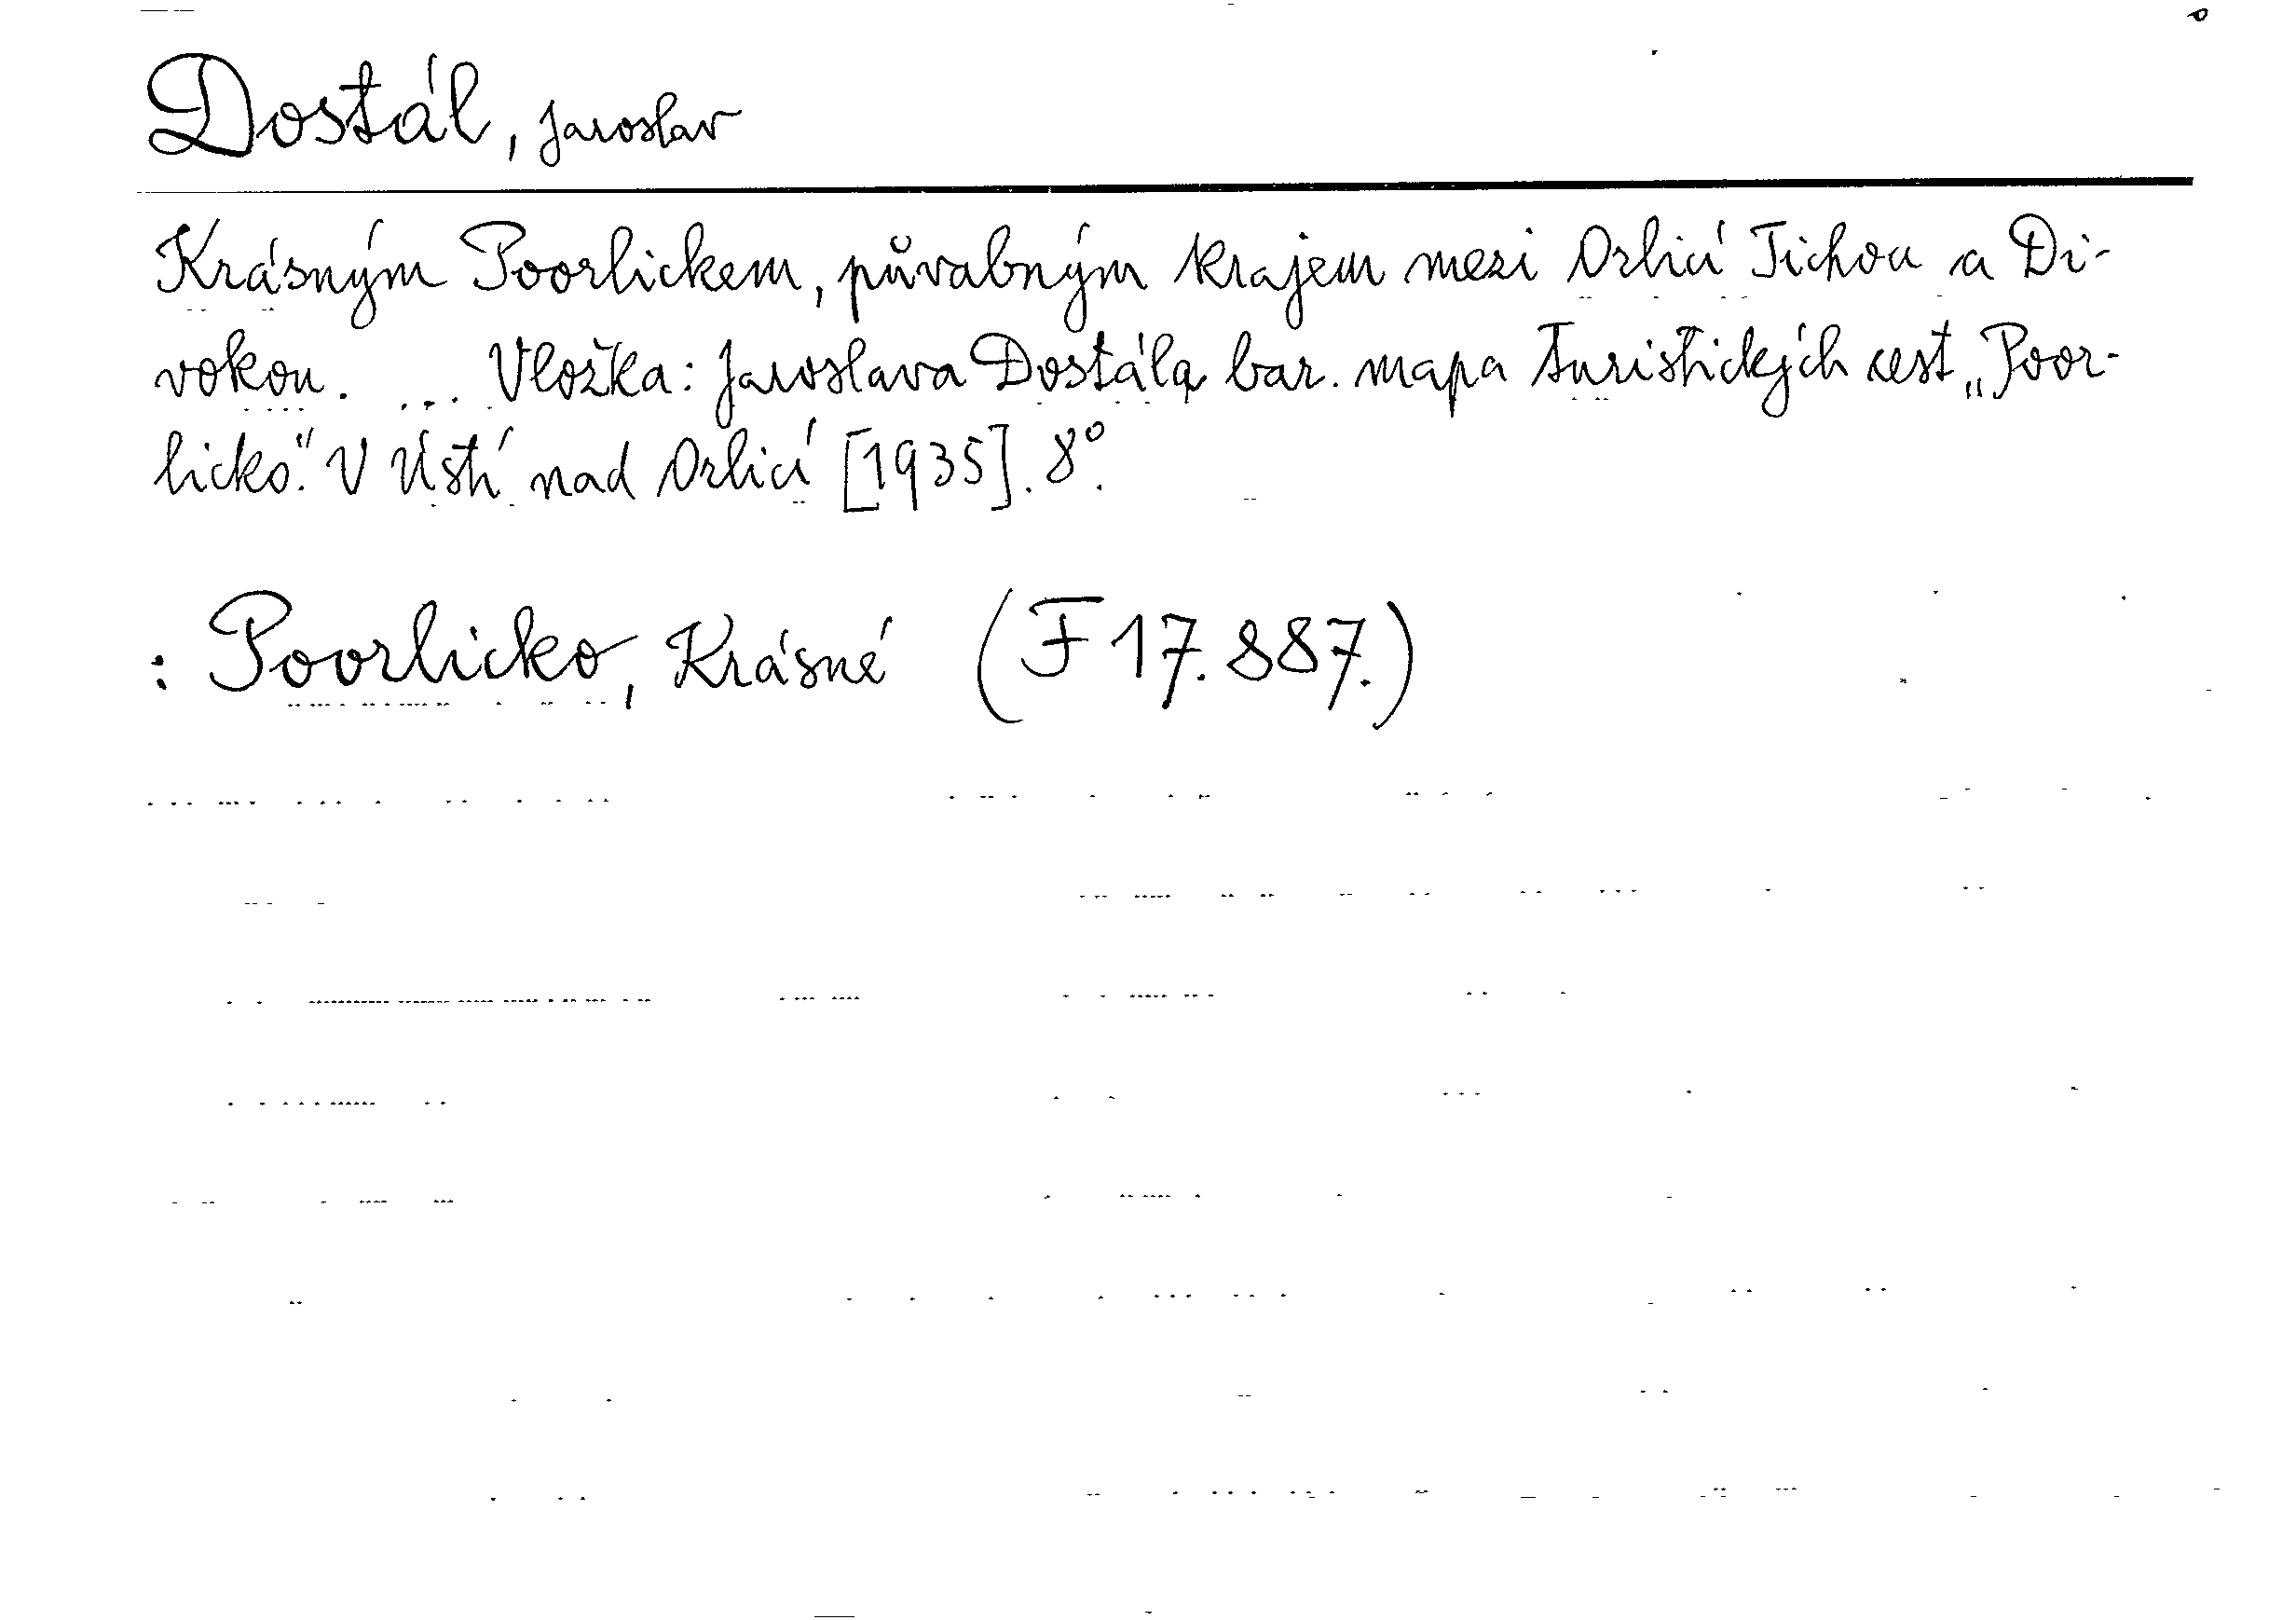 Dostál, Jaroslav
Krásným Poorlickem, půvabným krajem mezi Orlicí Tichou a Di-
vokou. ... Vložka: Jaroslava Dostála bar. mapa turistických cest „Poor-
licko." V Ústí nad Orlicí [1935]. 8°.
: Poorlicko, Krásné (F 17.887.)